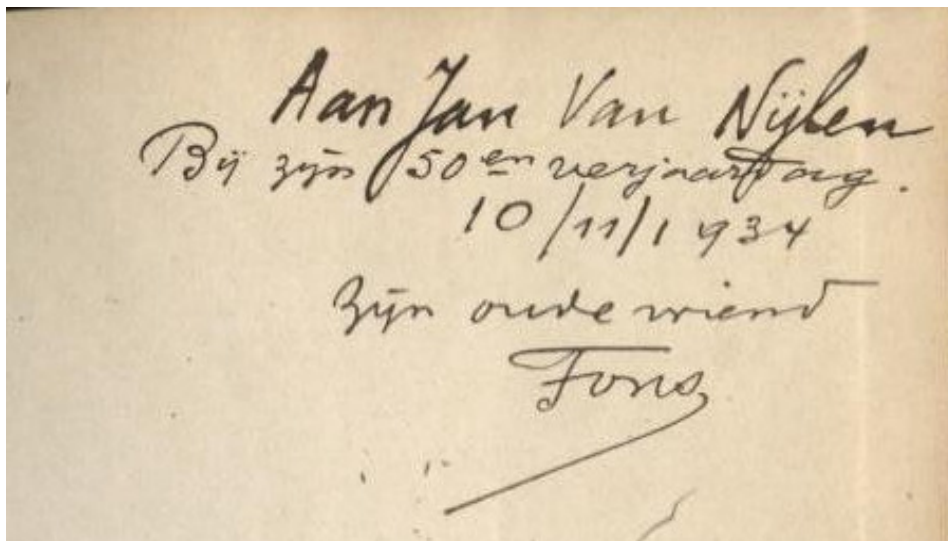 Aan Jan Van Nijlen
Bij zijn 50en verjaardag.
10/11/1934
Zijn oude vriend
Fons